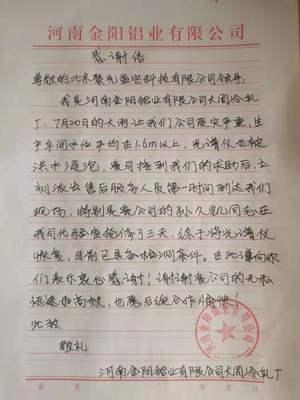 河南金阳铝业有限公司
感谢信
尊敬的北京 科技有限公司领导:
我是河南金阳铝业有限公司大周冷轧
厂,7月20日的大雨让我们公司受灾严重,生
产车间水位平均在1.6m以上,光谱仪也被
洪水浸泡,贵司接到我们的求助后,立
刻派出售后服务人员第一时间到达我们
现场,特别是贵公司的孙久 同志在
我司化验室抢修了三天,终于将光谱仪
恢复,目前已具备检测条件。在此谨向你
们表示衷心感谢!谢谢贵公司的无私
和高效,也愿后续合作愉快
此致
敬礼
河南金阳铝业有限公司大周冷轧厂